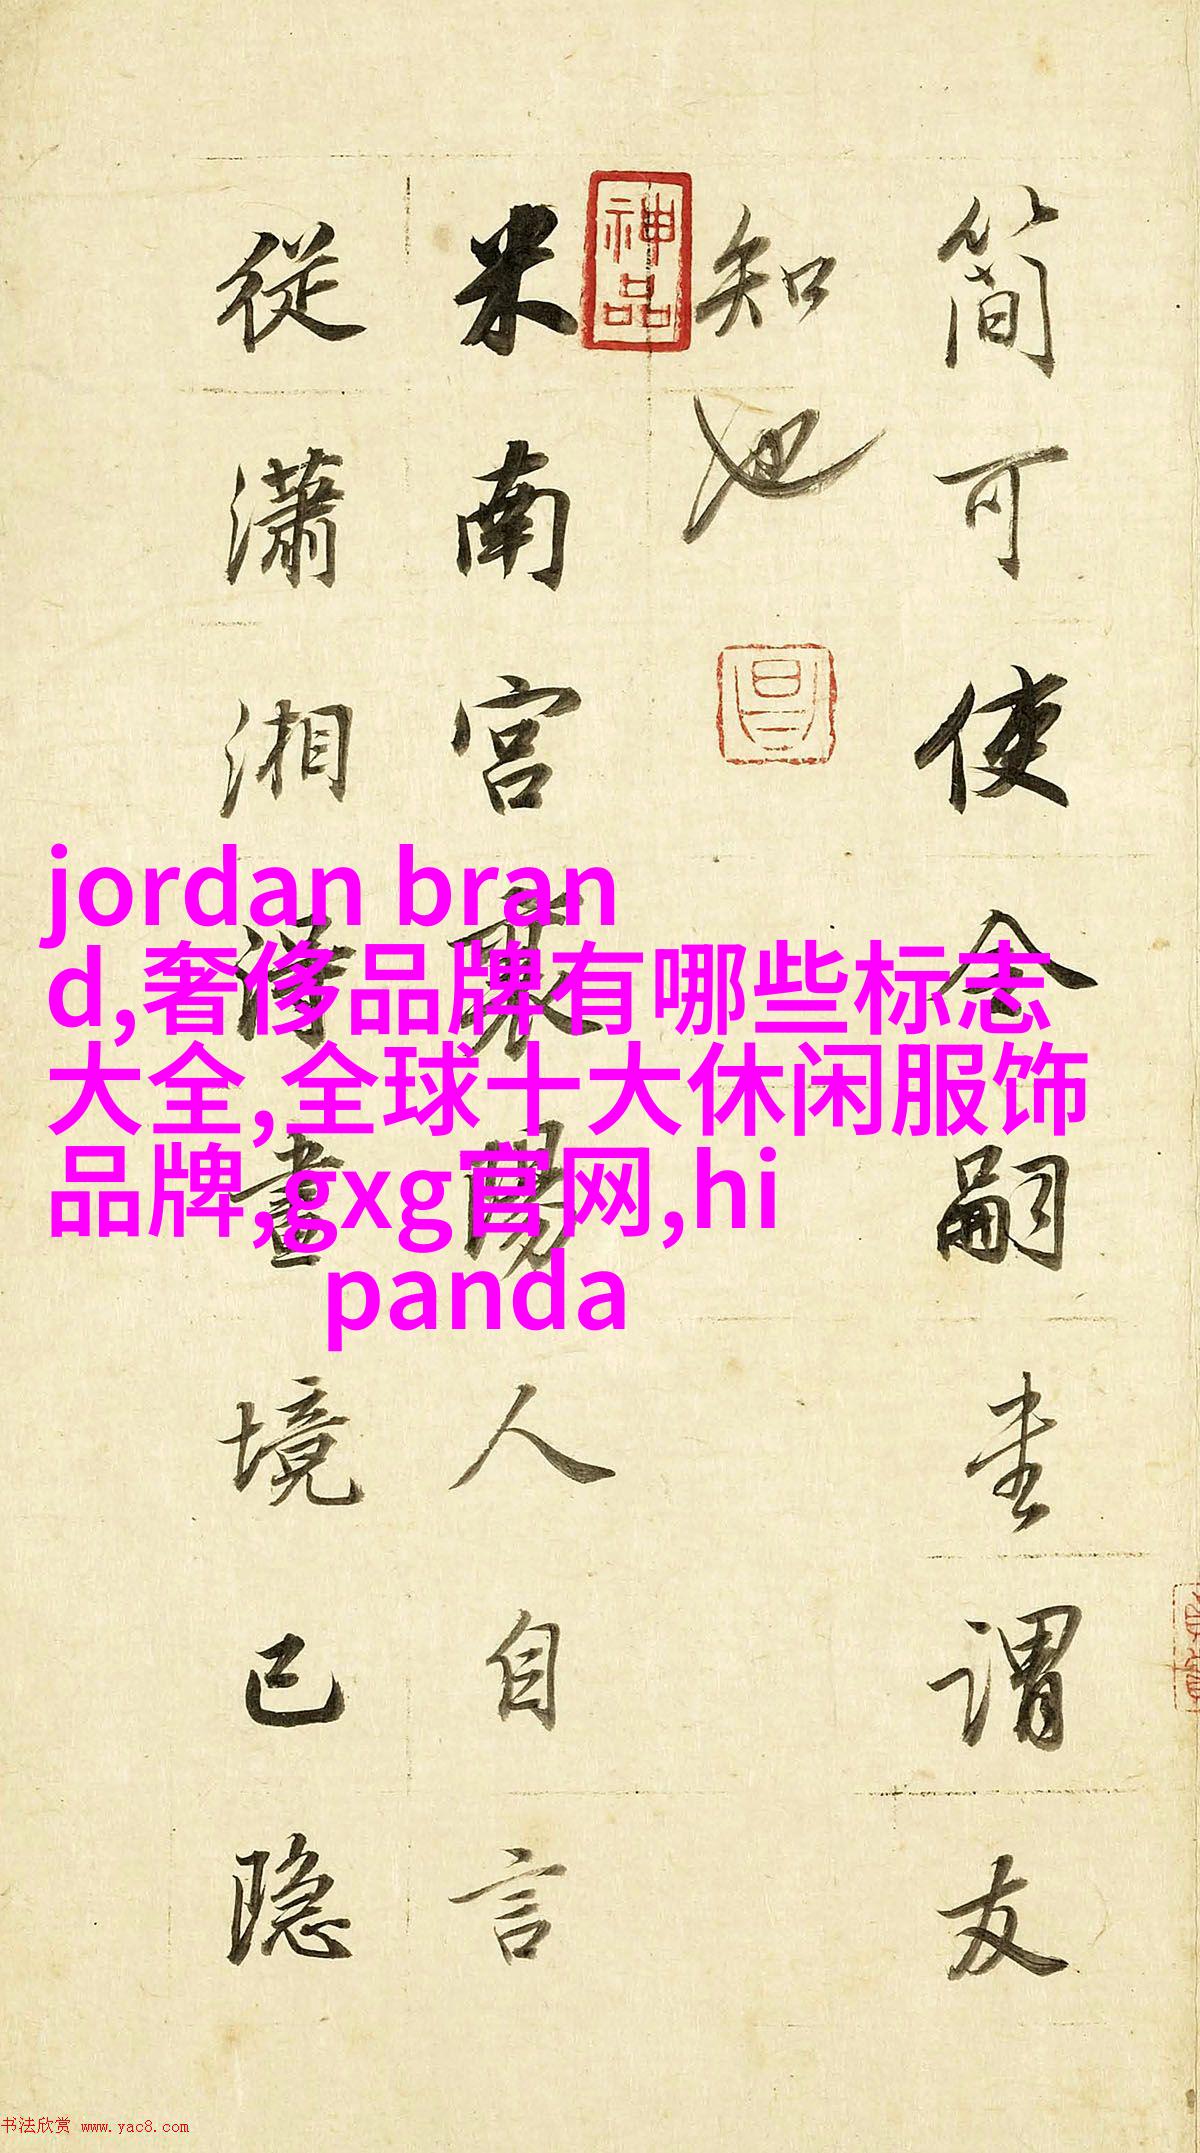 簡可使令嗣谓友
知也
神品
昌
米南宮襄陽人自言
從瀟湘得畫境已隱
jordan bran
d,奢侈品牌有哪些标志
大全,全球十大休闲服饰
品牌,gxg官网,hi
panda
书法欣赏 www.yac8.com